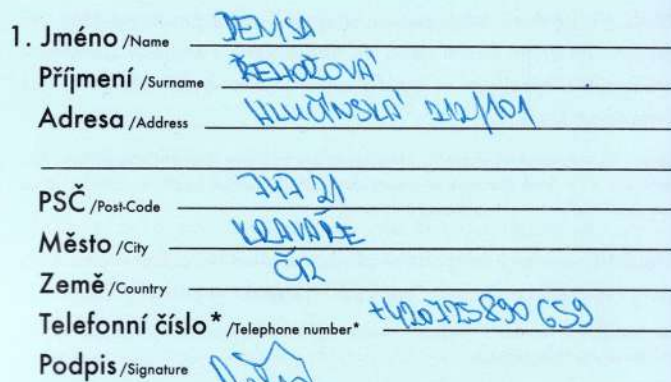 1. Jméno /Name DENISA
Příjmení /Surname ŘEHOŘOVÁ
Adresa /Address HLUČÍNSKÁ 212/101
PSČ /Post-Code 747 21
Město /City KRAVAŘE
Země /Country ČR
Telefonní číslo* /Telephone number* +420725890659
Podpis /Signature